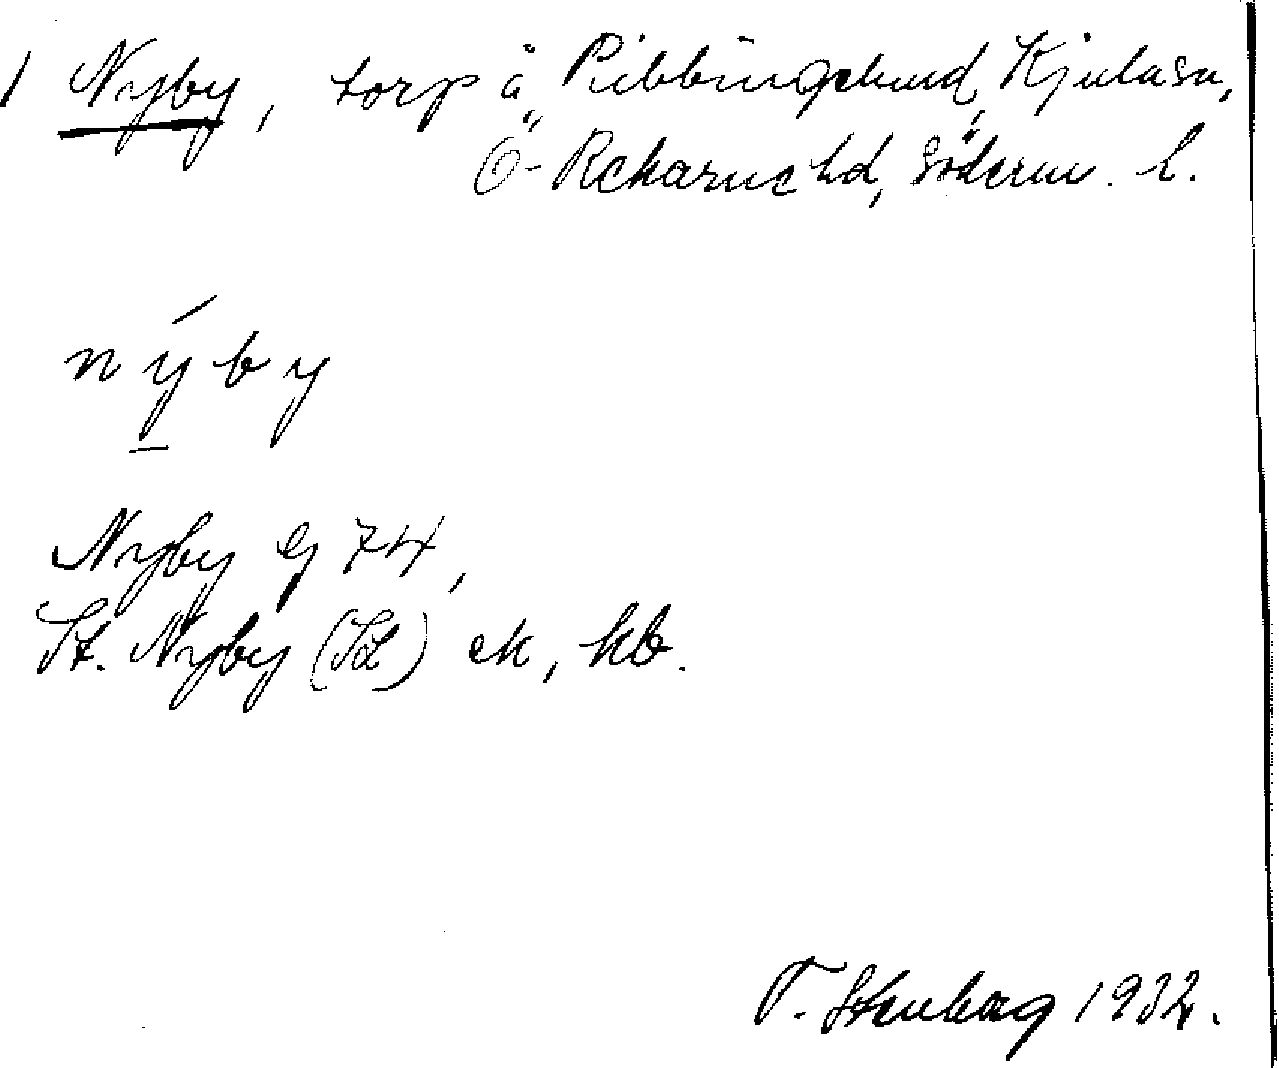 1 Nyby, torp å Ribbingelund, Kjulasn,
Ö-Rekarne hd, Söderm. l.
nýby
Nyby GJ 74,
St. Nyby (St) ek, kb.
T. Stenhag 1932.